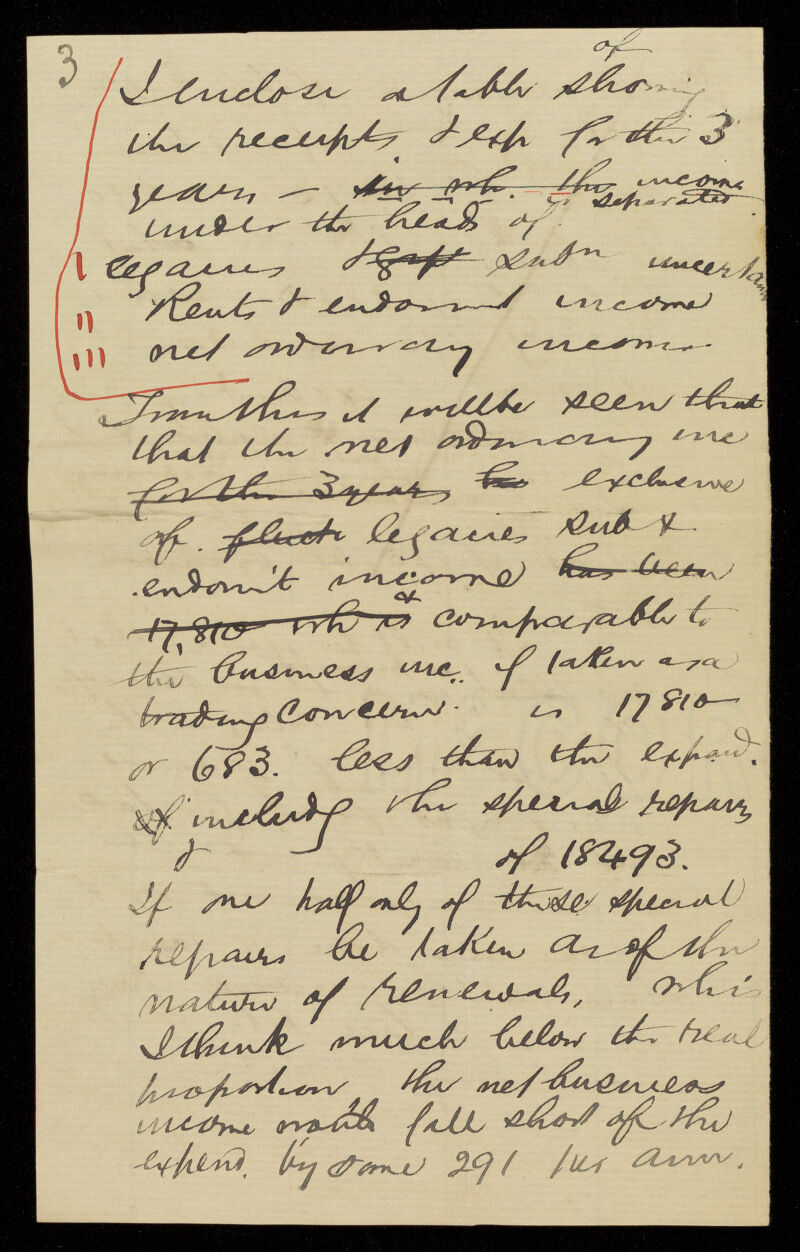 3
of
I enclose a table showing
the receipts & exp for the 3
years — in wh. the income
is separated
under the heads of
I legacies & gift subn uncertain
II Rents & endowmt income
III net ordinary income
From this it will be seen that
that the net ordinary inc
for the 3 years has exclusive
of. legacies sub &
endowm't income has been
17,810 wh is & comparable to
the business inc. if taken as a
trading concern. is 17810
or 683. less than the expend.
of includg the special repairs
& of 18493.
If one half only of these special
repairs be taken as of the
nature of renewals, wh is
I think much below the real
proportion, the net business
income would fall short of the
expend. by some 291 per ann.